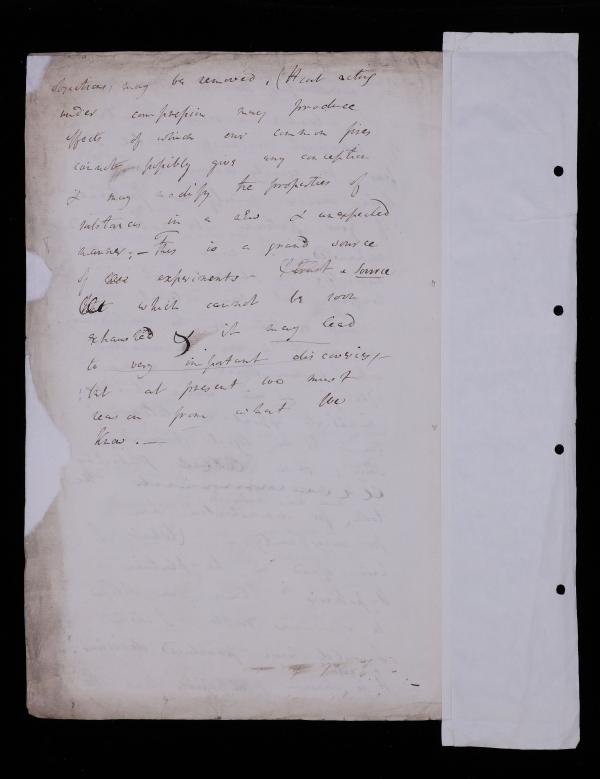 objections, may be removed. (Heat acting
under compression may produce
effects of which our common fires
cannot possibly give any conception
& may modify the properties of
substances in a new & unexpected
manner; - This is a grand source
of experiments - I trust a source
which cannot be soon
exhausted & it may lead
to very important discoveries, -
but at present we must
reason from what we
know. -